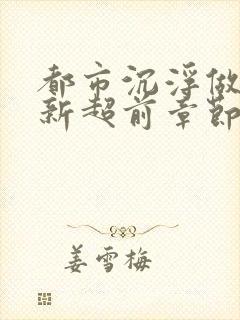 都市沉浮做
新超前章節
姜雪梅